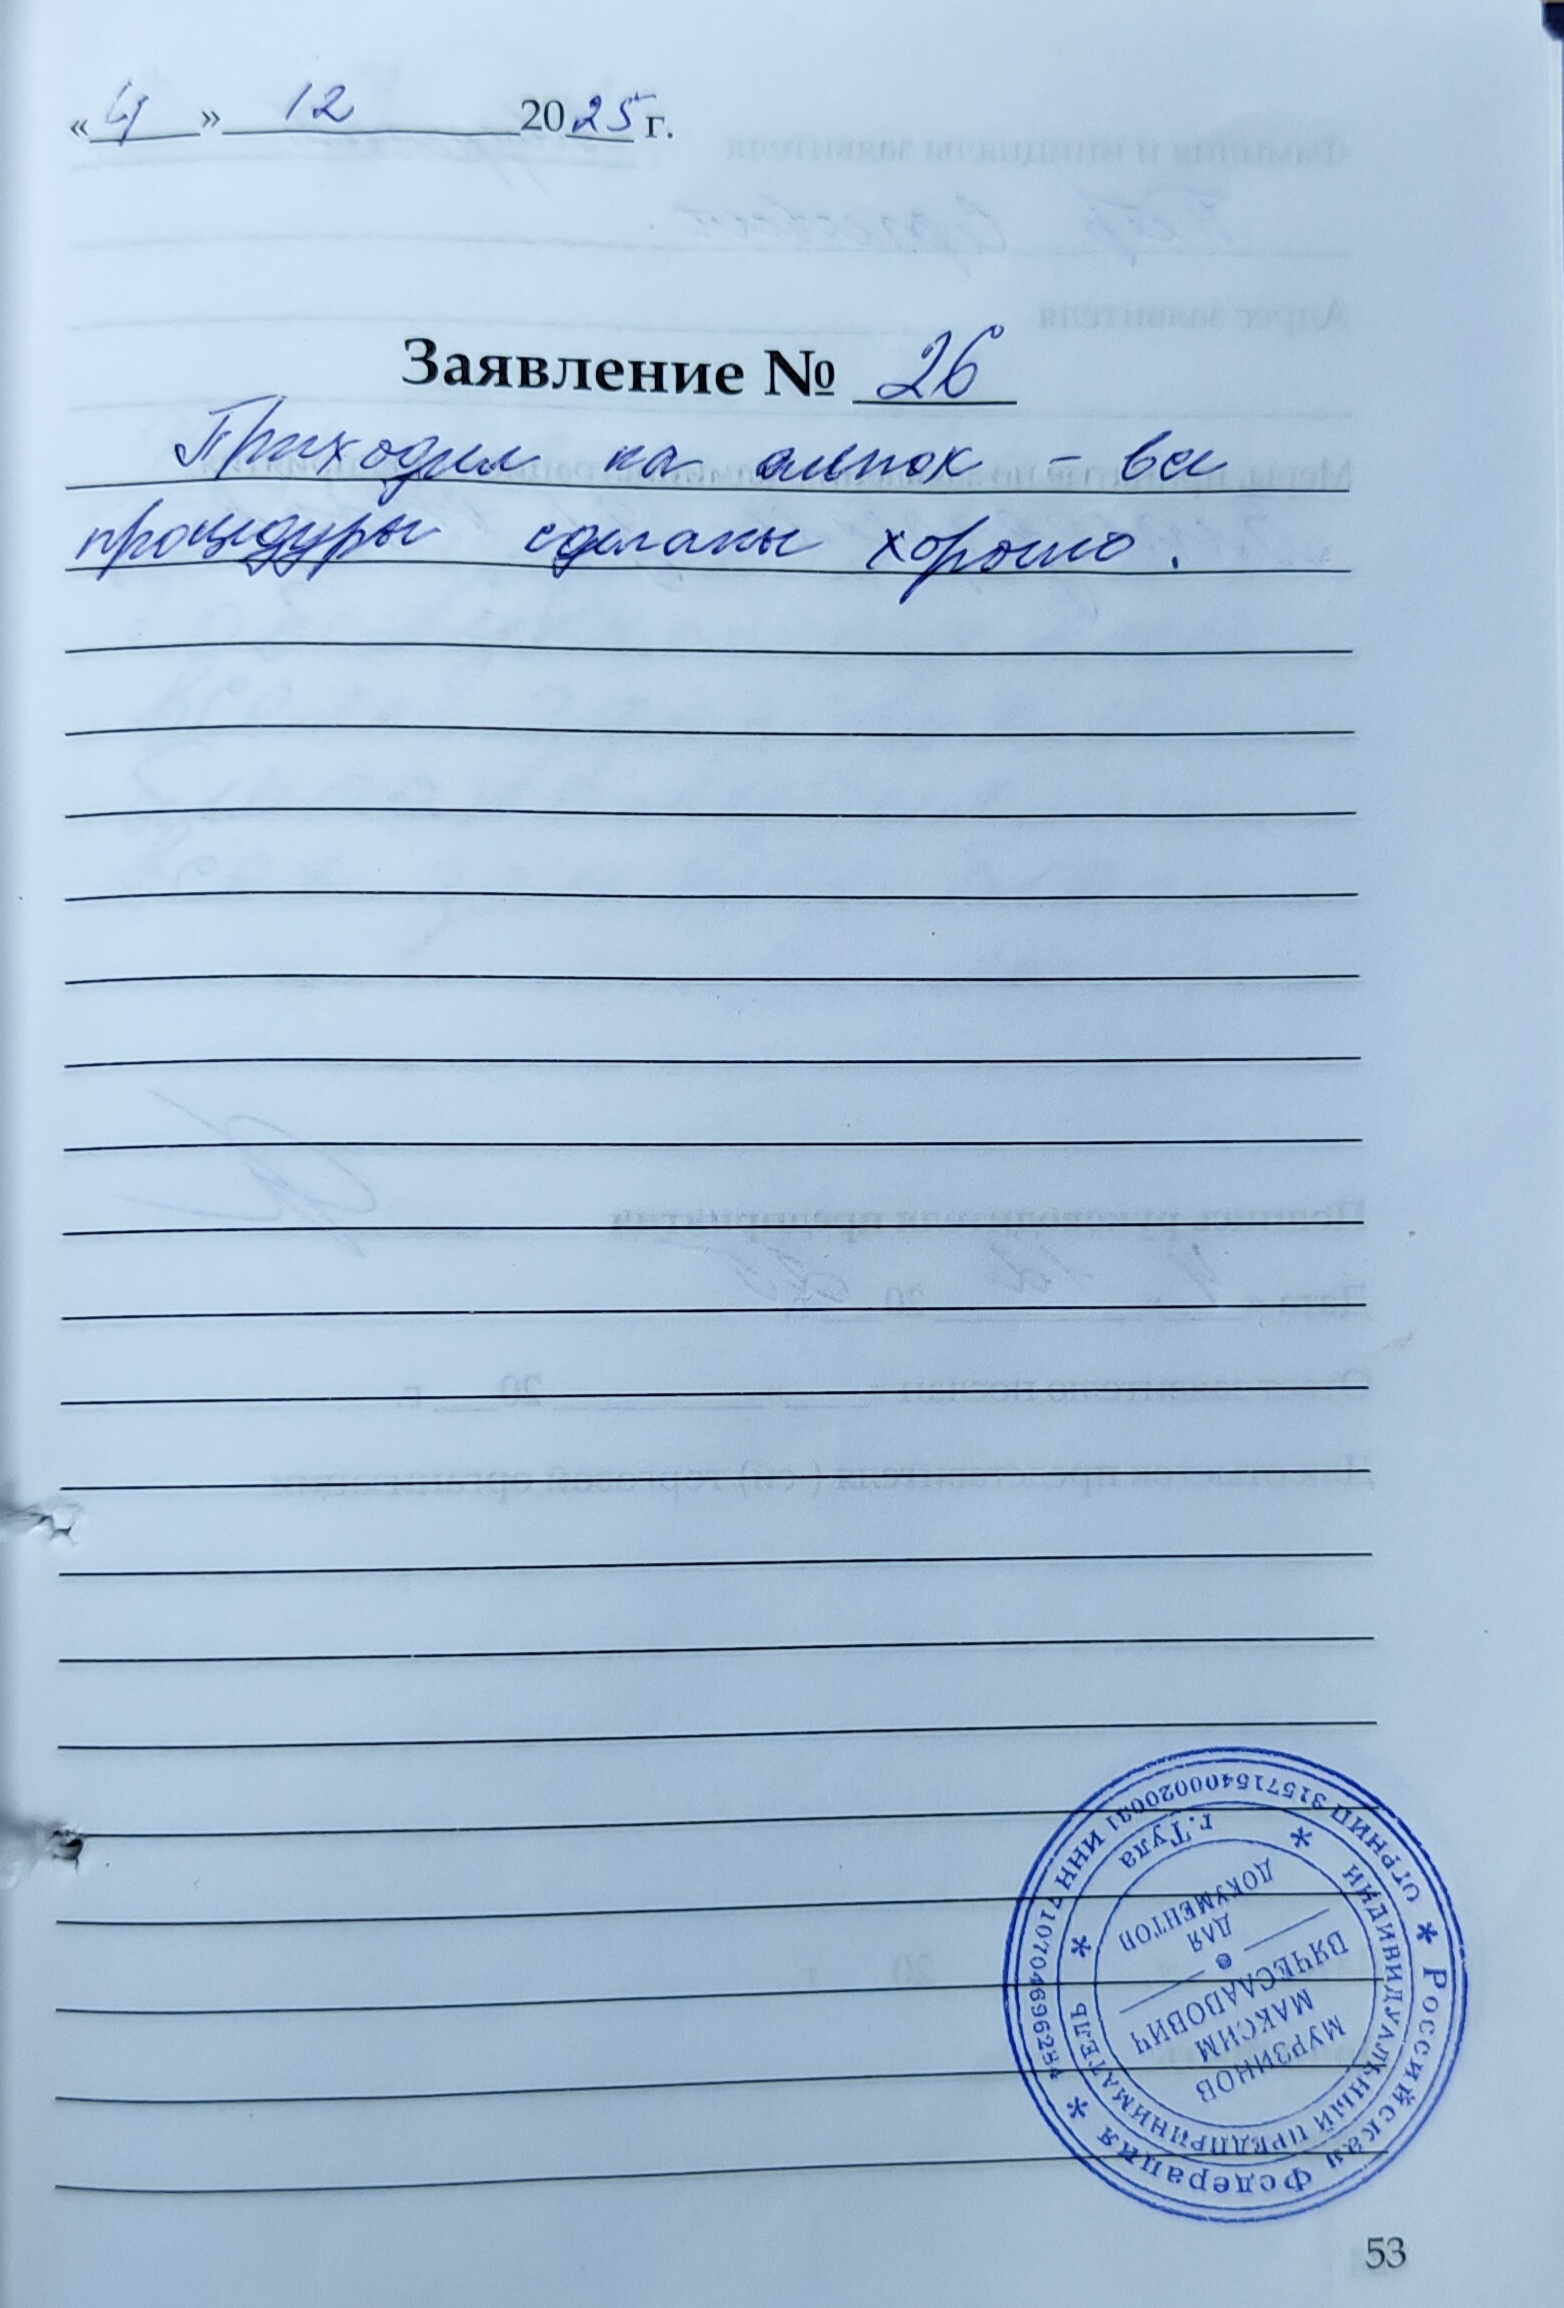 «4» 12 2025 г.
Заявление № 26
Приходил на - все
процедуры сделаны хорошо.
* Российская Федерация * ИНН 710704699628 ОГРНИП 315715400020031
ИНДИВИДУАЛЬНЫЙ ПРЕДПРИНИМАТЕЛЬ * г.Тула *
МУРЗИНОВ
МАКСИМ
ВЯЧЕСЛАВОВИЧ
ДЛЯ
ДОКУМЕНТОВ
53